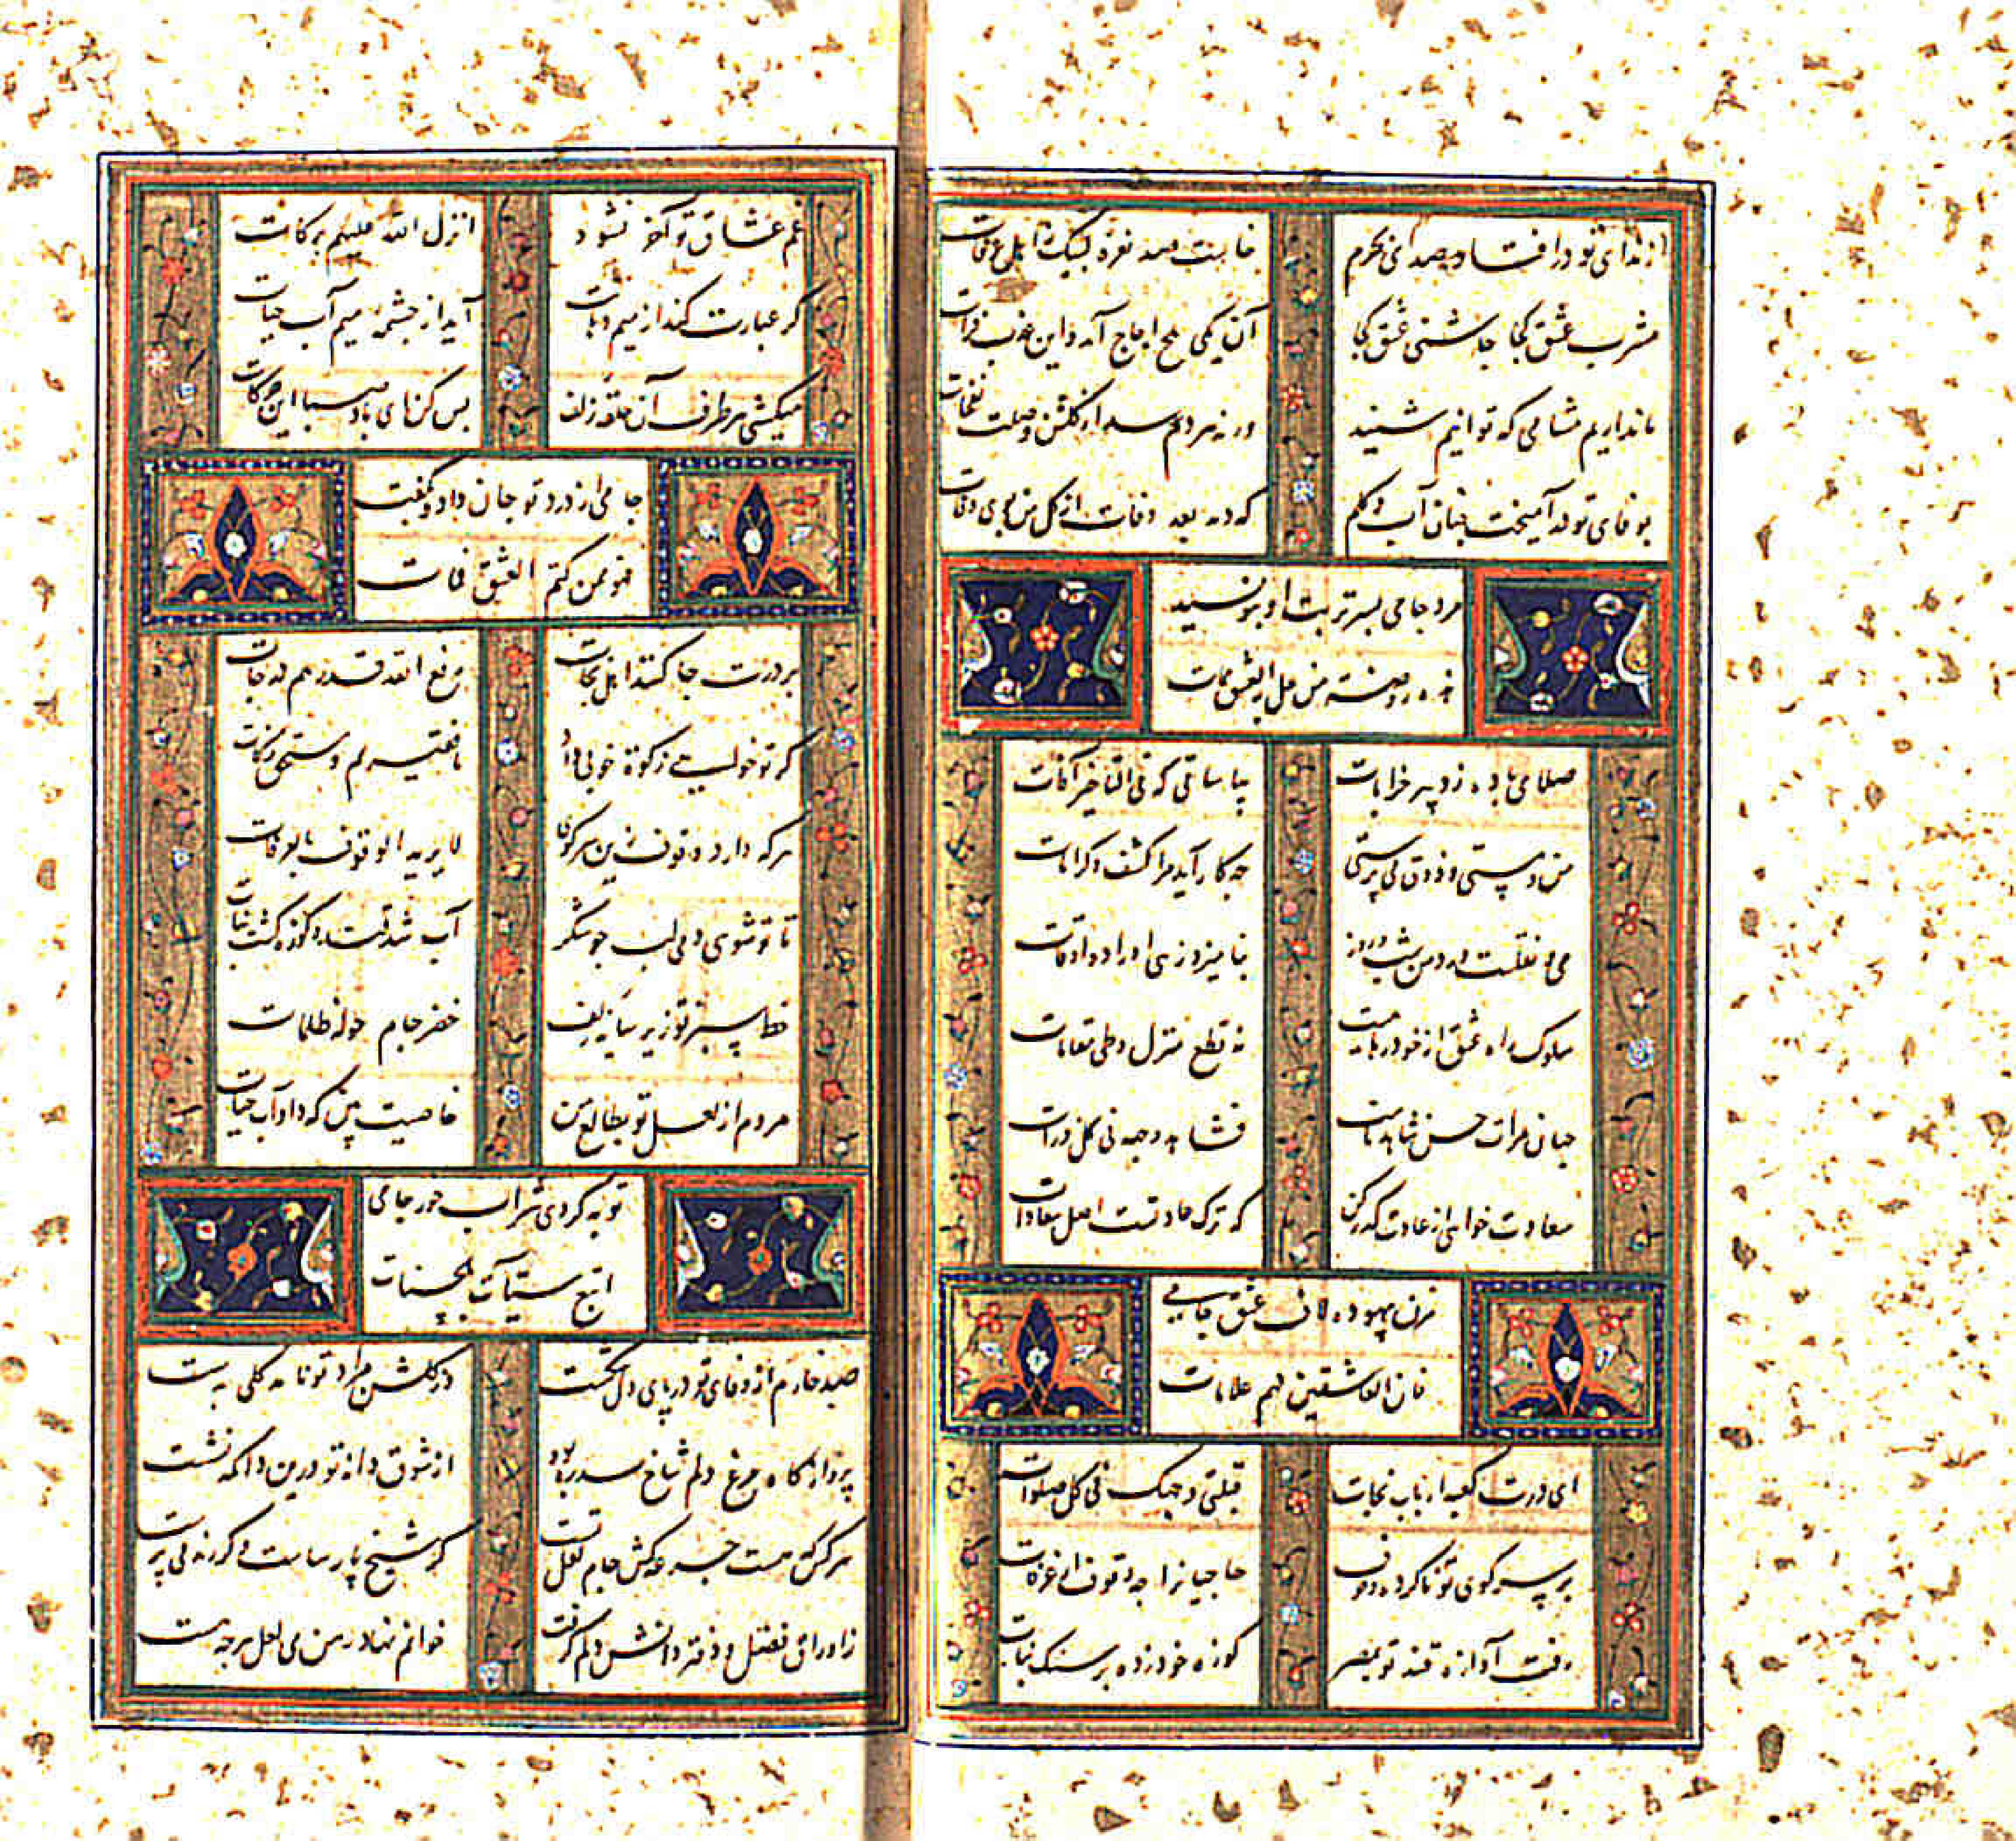 از ندای تو در افتاد صدائی بحرم
خاست صد نعره لبیک ز اهل عرفات
مشرب عشق کجا چاشنی عشق کجا
آن یکی ملح اجاج آمد و این عذب فرات
ما نداریم مشامی که توانیم شنید
ورنه هر دم رسد از گلشن وصلت نفحات
بوفای تو در آمیخت چنان آب و گلم
که دمد بعد وفات از گل من بوی وفات
مرد جامی بسر تربت او بنویسید
هذه روضة من حل به العشق فمات
صلای باده زد پیر خرابات
بیا ساقی که فی التاخیر آفات
من و مستی و ذوق می پرستی
چه کار آید مرا کشف و کرامات
می و نقلست ورد من شب و روز
بنامیزد زهی اوراد و اوقات
سلوک راه عشق از خود رهاییست
نه قطع منزل و طی مقامات
جهان مرات حسن شاهد ماست
فشاهد وجهه فی کل ذرات
سعادت خواهی از عادت گذر کن
که ترک عادتست اصل سعادات
مزن بیهوده لاف عشق جامی
فان العاشقین لهم علامات
ای درت کعبه ارباب نجات
قبلتی وجهک فی کل صلوات
بر سر کوی تو ناکرده وقوف
حاجیانرا چه وقوف از عرفات
رفت آوازه قند تو بمصر
کوزه خود زده بر سنگ نبات
غم عشاق تو آخر نشود
انزل الله علیهم برکات
گر عبارت کنند از میم دهانت
آید از چشمه میم آب حیات
میکشی هر طرف آن حلقه زلف
بس کن ای باد صبا این حرکات
جامی از درد تو جان داد و نگفت
فهو ممن کتم العشق فمات
بر درت جا کنند اهل نجات
رفع الله قدرهم درجات
گر تو خواهی زکوة خوبی داد
ما فقیریم و مستحق زکات
هر که دارد وقوف زین سر کوی
لا یرید الوقوف بالعرفات
تا تو شوی دمی لب چو شکر
آب شد قند و کوزه گشت نبات
خط سبز تو زیر سایه زلف
خضر جام حوله ظلمات
مردم از لعل تو بطالع من
خاصیت بین که داد آب حیات
توبه کردی شراب خور جامی
اتبع سیئات بالحسنات
صد خارم از وفای تو در پای دل شکست
در گلشن مراد تو نامد گلی بدست
پروازگاه مرغ دلم شاخ سدره بود
از شوق دانه تو درین دامگه نشست
هر کس که هست جرعه کش جام لعل تست
گر شیخ پارساست وگر رند می پرست
ز اوراق فضل و دفتر دانش دلم گرفت
خواهم نهاد رهن می لعل هر چه هست